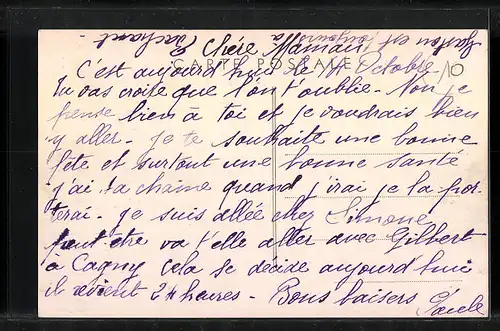 Chère Maman
CARTE POSTALE
C'est aujourd'hui le Octobre
tu vas croire que l'on t'oublie. Non je
pense bien à toi et je voudrais bien
y aller. je te souhaite une bonne
fête et surtout une bonne santé
j'ai ta chaîne quand j'irai je la por-
terai. je suis allée chez Simone
peut être va t'elle aller avec Gilbert
à Cagny cela se décide aujourd'hui
il revient 24 heures. Bons baisers
est toujours
sachant